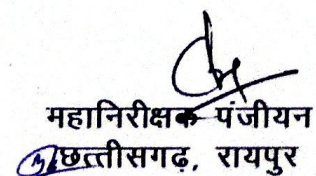 महानिरीक्षक पंजीयन
छत्तीसगढ़, रायपुर